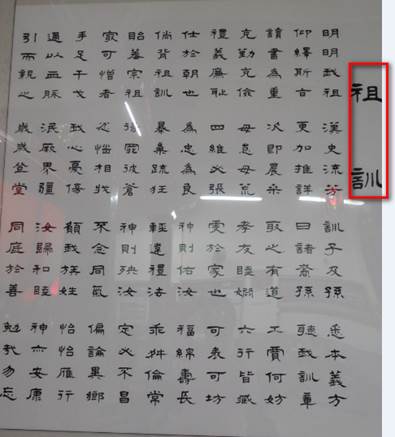 祖訓
明明我祖漢史流芳訓子及孫悉本義方
仰繹斯旨更加推詳曰諸裔孫聽我訓章
讀書為重次即農桑取之有道工賈何妨
克勤克儉毋怠毋荒孝友睦婣六行皆臧
禮義廉恥四維畢張處於家也可表可坊
仕於朝也為忠為良神則佑汝福綿壽長
倘背祖訓暴棄疏狂輕違禮法乖舛倫常
貽羞宗祖得罪彼蒼神則殃汝定必不昌
最可憎者分類相戕不念同氣偏論異鄉
手足干戈我心憂傷願我族姓怡怡雁行
通以血脈泯厥界疆汝歸和睦神亦安康
引而親之歲歲登堂同底於善勉哉勿忘